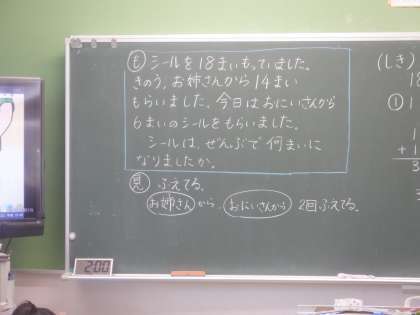 も シールを18まいもっていました。
きのう、お姉さんから14まい
もらいました。今日はおにいさんから
6まいのシールをもらいました。
シールは、ぜんぶで何まいに
なりましたか。
見 ふえてる。
お姉さんから、おにいさんから 2回ふえてる。
(しき)
18
①
1
+1
3
2:00